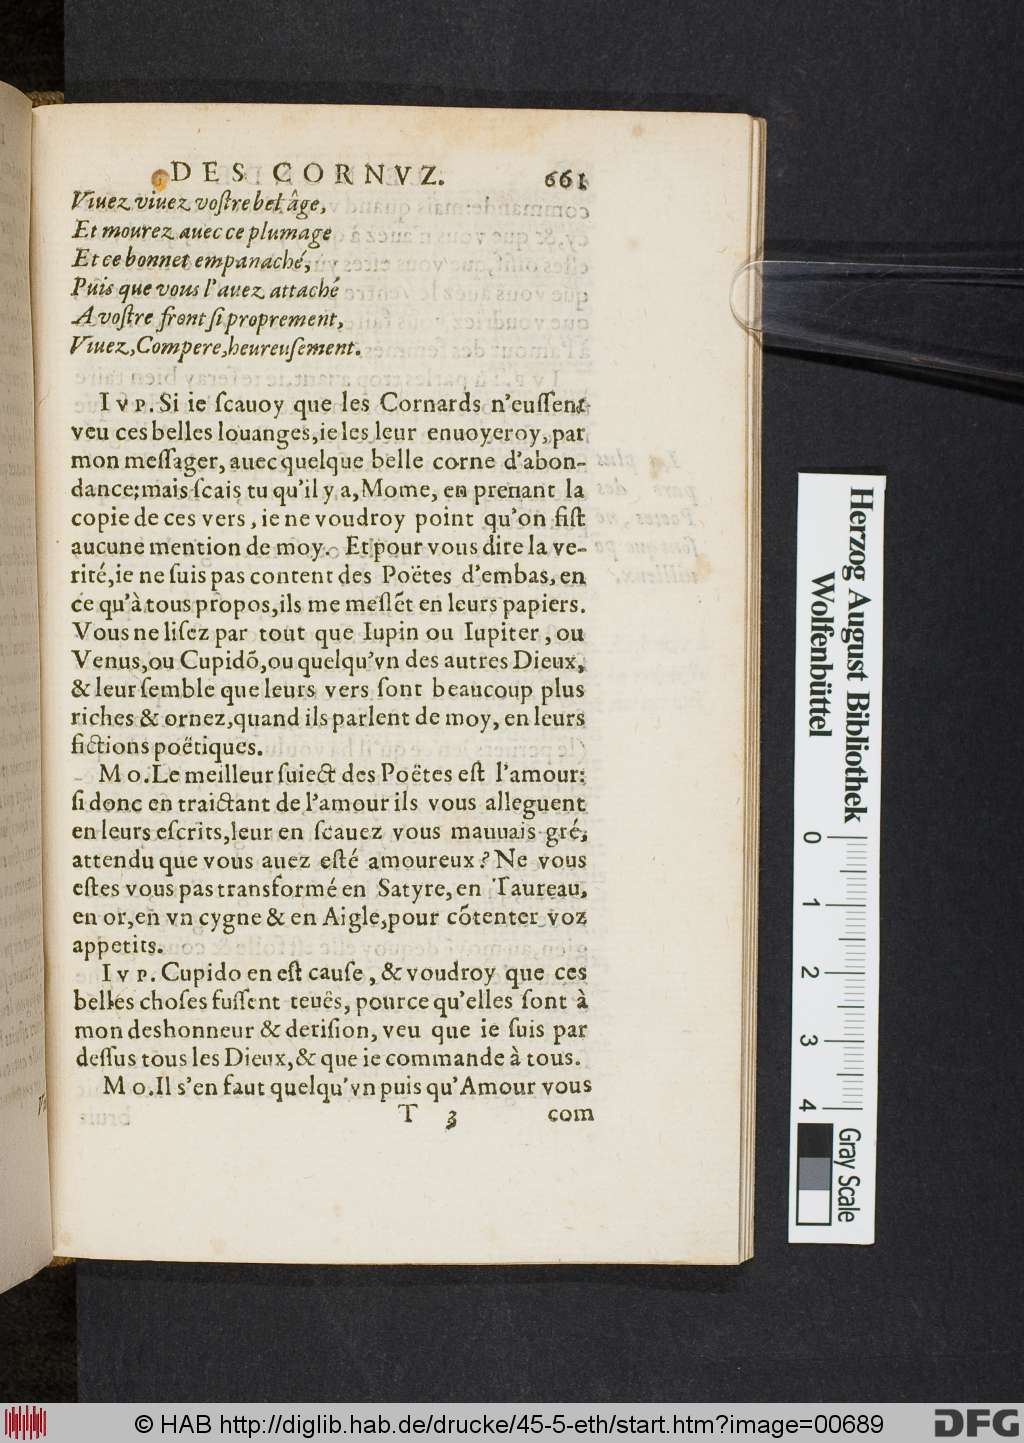 DES CORNVZ. 661
Viuez viuez voſtre bel âge,
Et mourez auec ce plumage
Et ce bonnet empanaché,
Puis que vous l'auez attaché
A voſtre front ſi proprement,
Viuez, Compere, heureuſement.
IVP. Si ie ſcauoy que les Cornards n'euſſent
veu ces belles louanges, ie les leur enuoyeroy, par
mon meſſager, auec quelque belle corne d'abon-
dance; mais ſcais tu qu'il y a, Mome, en prenant la
copie de ces vers, ie ne voudroy point qu'on fiſt
aucune mention de moy. Et pour vous dire la ve-
rité, ie ne ſuis pas content des Poëtes d'embas, en
ce qu'à tous propos, ils me meſlẽt en leurs papiers.
Vous ne liſez par tout que Iupin ou Iupiter, ou
Venus, ou Cupidõ, ou quelqu'vn des autres Dieux,
& leur ſemble que leurs vers ſont beaucoup plus
riches & ornez, quand ils parlent de moy, en leurs
fictions poëtiques.
MO. Le meilleur ſuiect des Poëtes eſt l'amour:
ſi donc en traictant de l'amour ils vous alleguent
en leurs eſcrits, leur en ſcauez vous mauuais gré,
attendu que vous auez eſté amoureux? Ne vous
eſtes vous pas transformé en Satyre, en Taureau,
en or, en vn cygne & en Aigle, pour cõtenter voz
appetits.
IVP. Cupido en eſt cauſe, & voudroy que ces
belles choſes fuſſent teuës, pource qu'elles ſont à
mon deshonneur & deriſion, veu que ie ſuis par
deſſus tous les Dieux, & que ie commande à tous.
MO. Il s'en faut quelqu'vn puis qu'Amour vous
T 3 com
Herzog August Bibliothek
Wolfenbüttel
0 1 2 3 4
Gray Scale
© HAB http://diglib.hab.de/drucke/45-5-eth/start.htm?image=00689
DFG